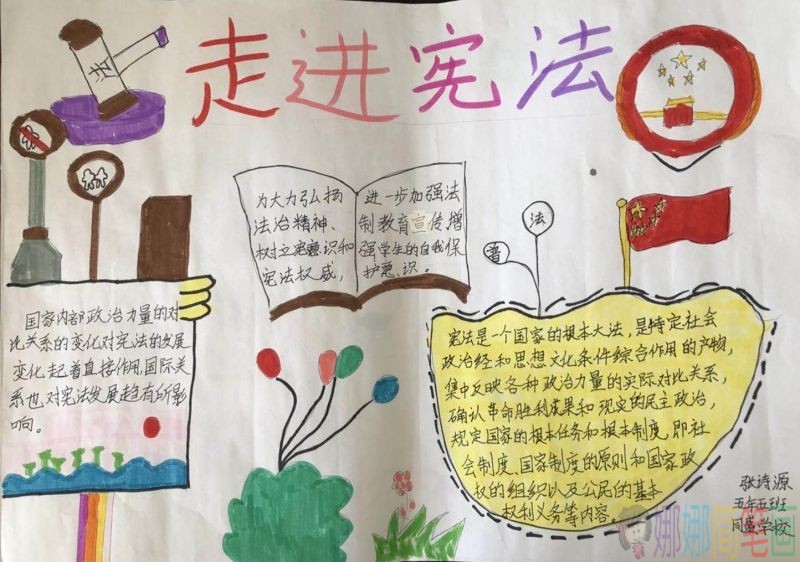 走进宪法
法
为大力弘扬
法治精神、
树立宪意识和
宪法权威，
进一步加强法
制教育宣传增
强学生的自我保
护意识。
普
法
国家内部政治力量的对
比关系的变化对宪法的发展
变化起着直接作用国际关
系也对宪法发展趋有所影
响。
宪法是一个国家的根本大法，是特定社会
政治经和思想文化条件综合作用的产物，
集中反映各种政治力量的实际对比关系，
确认革命胜利成果和现实的民主政治，
规定国家的根本任务和根本制度，即社
会制度国家制度的原则和国家政
权的组织以及公民的基本
权利义务等内容。
张诗源
五年五班
同盛学校
娜娜简笔画